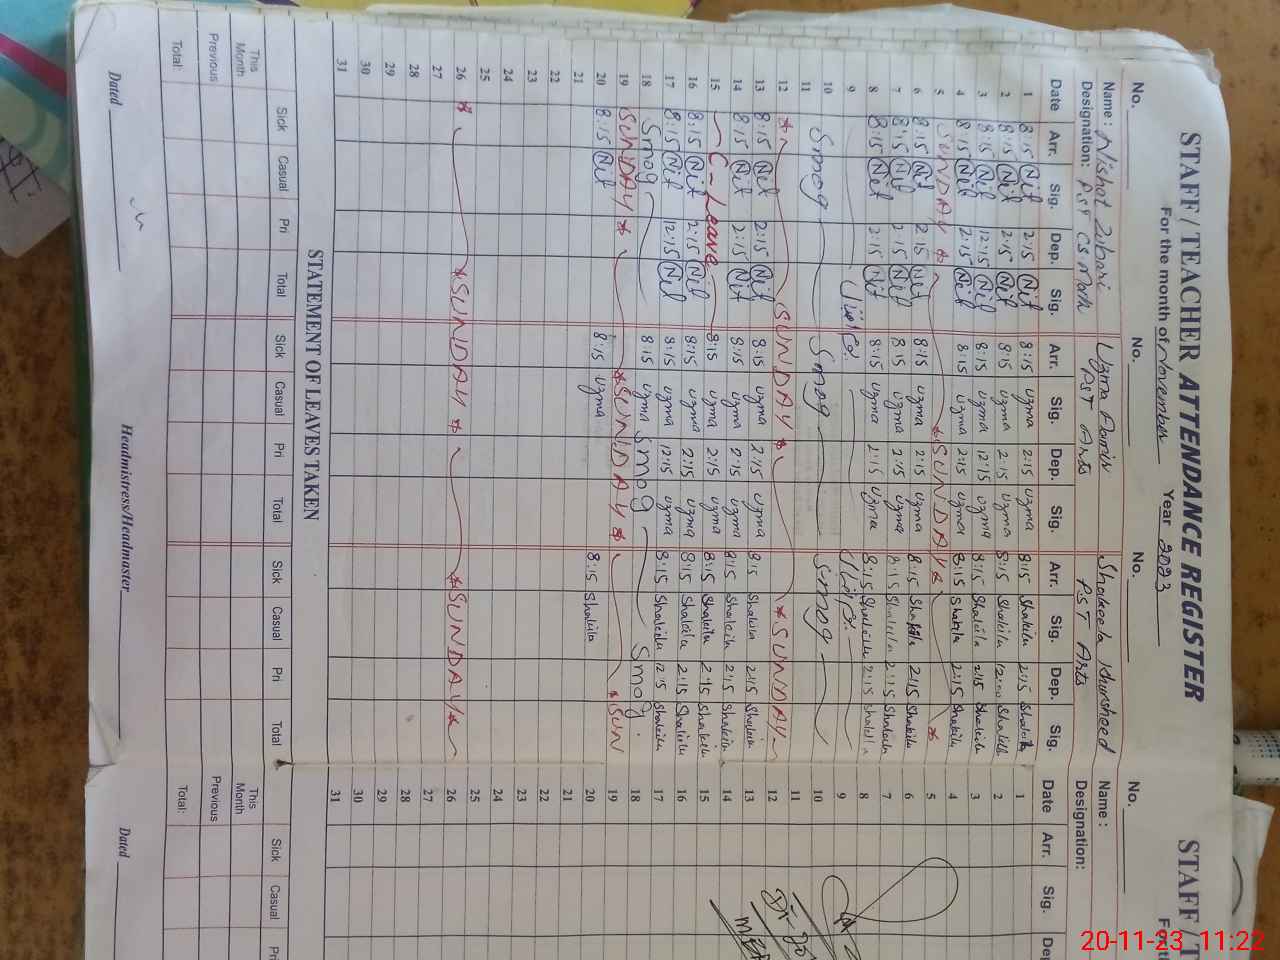 STAFF / TEACHER ATTENDANCE REGISTER
For the month of November Year 2023
No. No. No.
Name: Nishat Zubari Uzma Shakeela Khursheed
Designation: PST CS Math PST Arts PST Arts
Date Arr. Sig. Dep. Sig. Arr. Sig. Dep. Sig. Arr. Sig. Dep. Sig.
1 8:15 Nit 2:15 Nit 8:15 uzma 2:15 uzma 8:15 Shakila 2:15 Shakila
2 8:15 Nit 2:15 Nit 8:15 uzma 2:15 uzma 8:15 Shakila 12:00 Shakila
3 8:15 Nit 12:15 Nit 8:15 uzma 12:15 uzma 8:15 Shakila 2:15 Shakila
4 8:15 Nit 2:15 Nit 8:15 uzma 2:15 uzma 8:15 Shakila 2:15 Shakila
5 SUNDAY * * SUNDAY * *
6 8:15 Nit 2:15 Nit 8:15 uzma 2:15 uzma 8:15 Shakila 2:15 Shakila
7 8:15 Nit 2:15 Nit 8:15 uzma 2:15 uzma 8:15 Shakila 2:15 Shakila
8 8:15 Nit 2:15 Nit 8:15 uzma 2:15 uzma 8:15 Shakila 2:15 Shakila
9
10 Smog Smog Smog
11
12 * * SUNDAY * * SUNDAY
13 8:15 Nit 2:15 Nit 8:15 uzma 2:15 uzma 8:15 Shakila 2:15 Shakila
14 8:15 Nit 2:15 Nit 8:15 uzma 2:15 uzma 8:15 Shakila 2:15 Shakila
15 C-Leave 8:15 uzma 2:15 uzma 8:15 Shakila 2:15 Shakila
16 8:15 Nit 2:15 Nit 8:15 uzma 2:15 uzma 8:15 Shakila 2:15 Shakila
17 8:15 Nit 12:15 Nit 8:15 uzma 12:15 uzma 8:15 Shakila 12:15 Shakila
18 Smog 8:15 uzma Smog Smog
19 SUNDAY * * SUNDAY * * SUN
20 8:15 Nit 8:15 uzma 8:15 Shakila
21
22
23
24
25
26 * * SUNDAY * * SUNDAY *
27
28
29
30
31
STATEMENT OF LEAVES TAKEN
Sick Casual Pri Total Sick Casual Pri Total Sick Casual Pri Total
This Month
Previous
Total:
Dated Headmistress/Headmaster
STAFF / T
For th
No.
Name :
Designation:
Date Arr. Sig. De
1
2
3
4
5
6
7
8
9
10
11
12
13
14
15
16
17
18
19
20
21
22
23
24
25
26
27
28
29
30
31
Sick Casual Pri
This Month
Previous
Total:
Dated
20-11-23 11:22